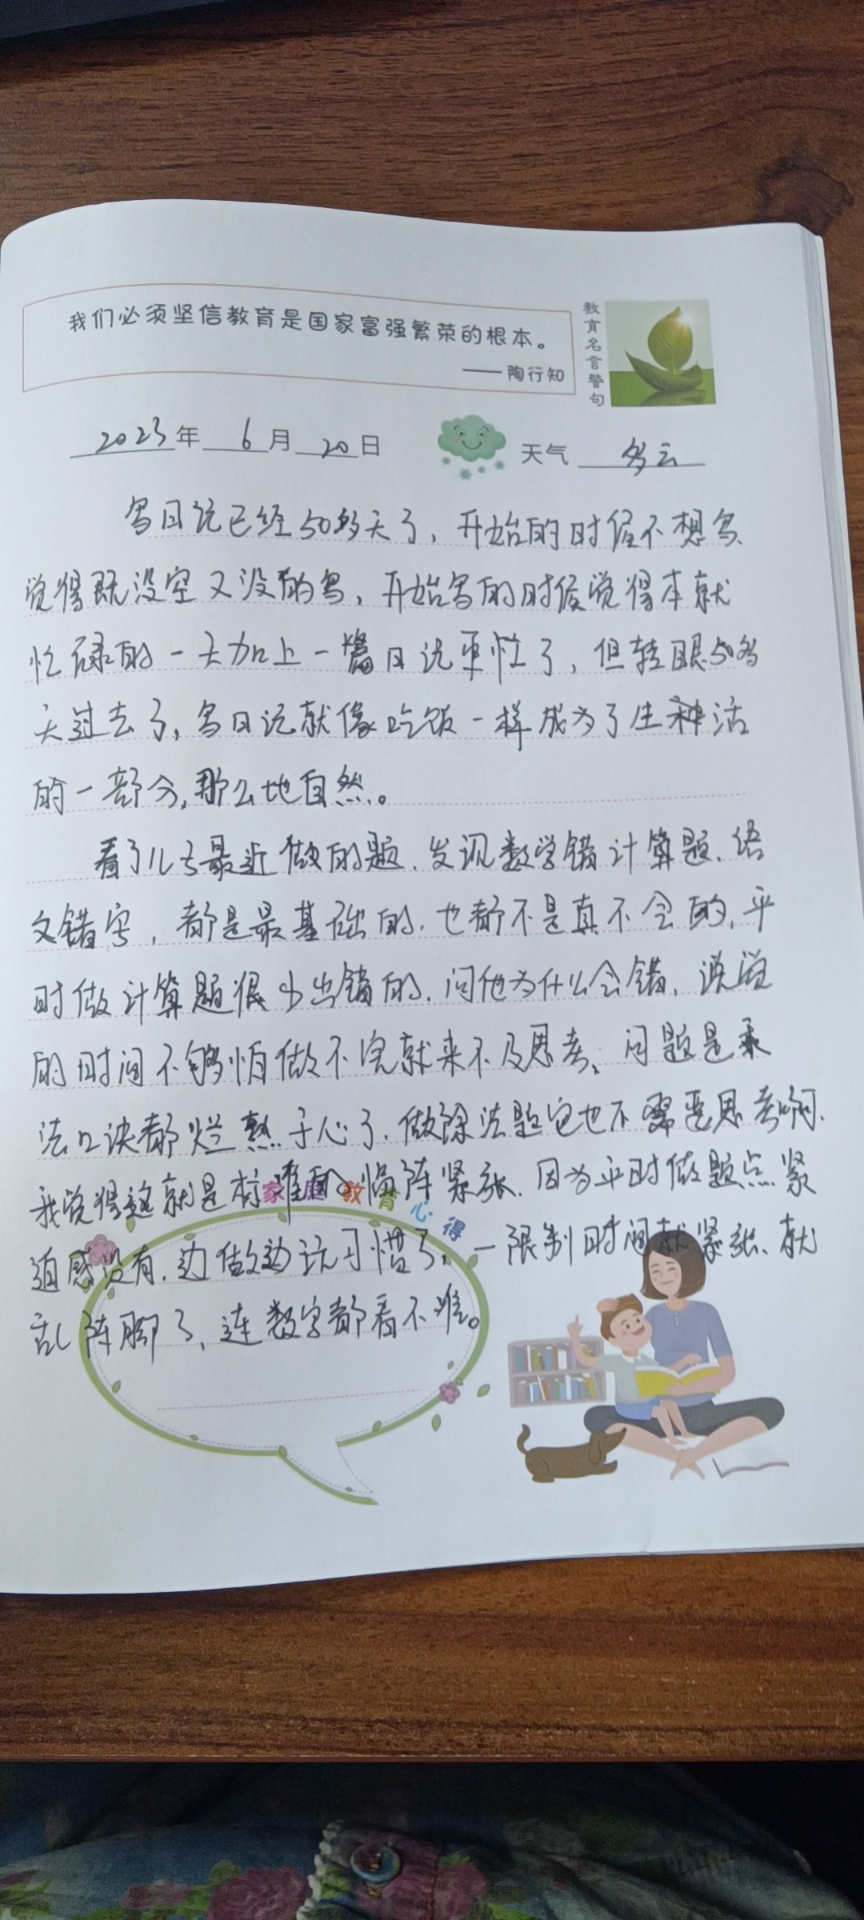 我们必须坚信教育是国家富强繁荣的根本。
——陶行知
教育名言警句
2023年 6月 20日
天气 多云
写日记已经50多天了，开始的时候不想写、
觉得既没空又没的写，开始写的时候觉得本就
忙碌的一天加上一篇日记更忙了，但转眼50多
天过去了，写日记就像吃饭一样成为了生活
的一部分，那么地自然。
看了儿子最近做的题，发现数学错计算题，语
文错字，都是最基础的，也都不是真不会的，平
时做计算题很少出错的，问他为什么会错，说觉
的时间不够怕做不完就来不及思考，问题是乘
法口诀都烂熟于心了，做除法题它也不需要思考啊，
我觉得这就是 临阵紧张，因为平时做题点紧
迫感没有，边做边玩习惯了，一限制时间就紧张、就
乱阵脚了，连数字都看不准。
家庭教育心得